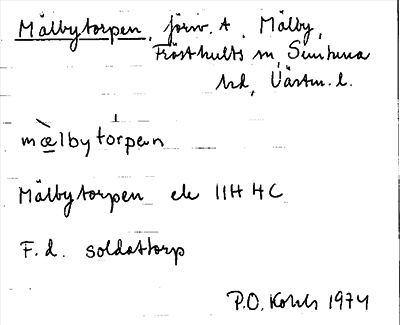 Mälbytorpen, förv. t. Mälby,
Frösthults sn, Simtuna
hd, Västm. l.
mœ̀lbytorpen
Mälbytorpen ek 11H 4C
F.d. soldattorp
P.O. 1974